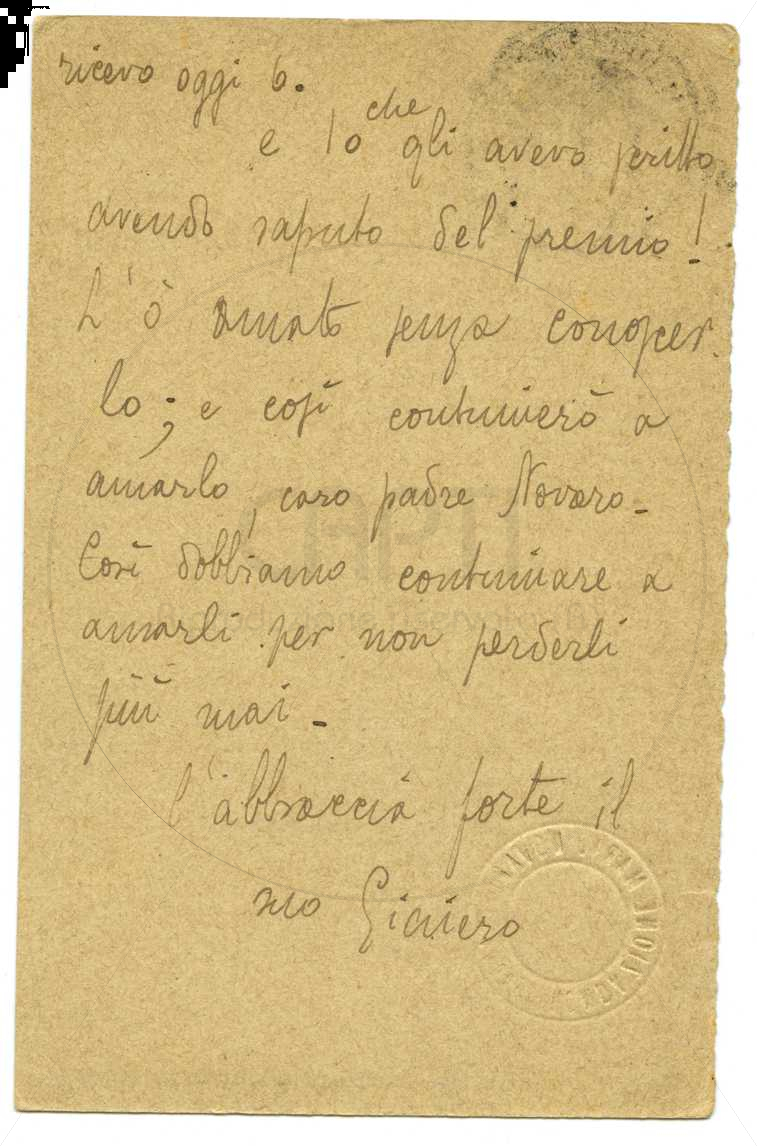 ricevo oggi 6.
che
e Io gli avevo scritto
avendo saputo del premio!
L'ò amato senza conoscer
lo; e così continuerò a
amarlo, caro padre Novaro -
Così dobbiamo continuare a
amarli per non perderli
più mai -
l'abbraccia forte il
suo Giniero